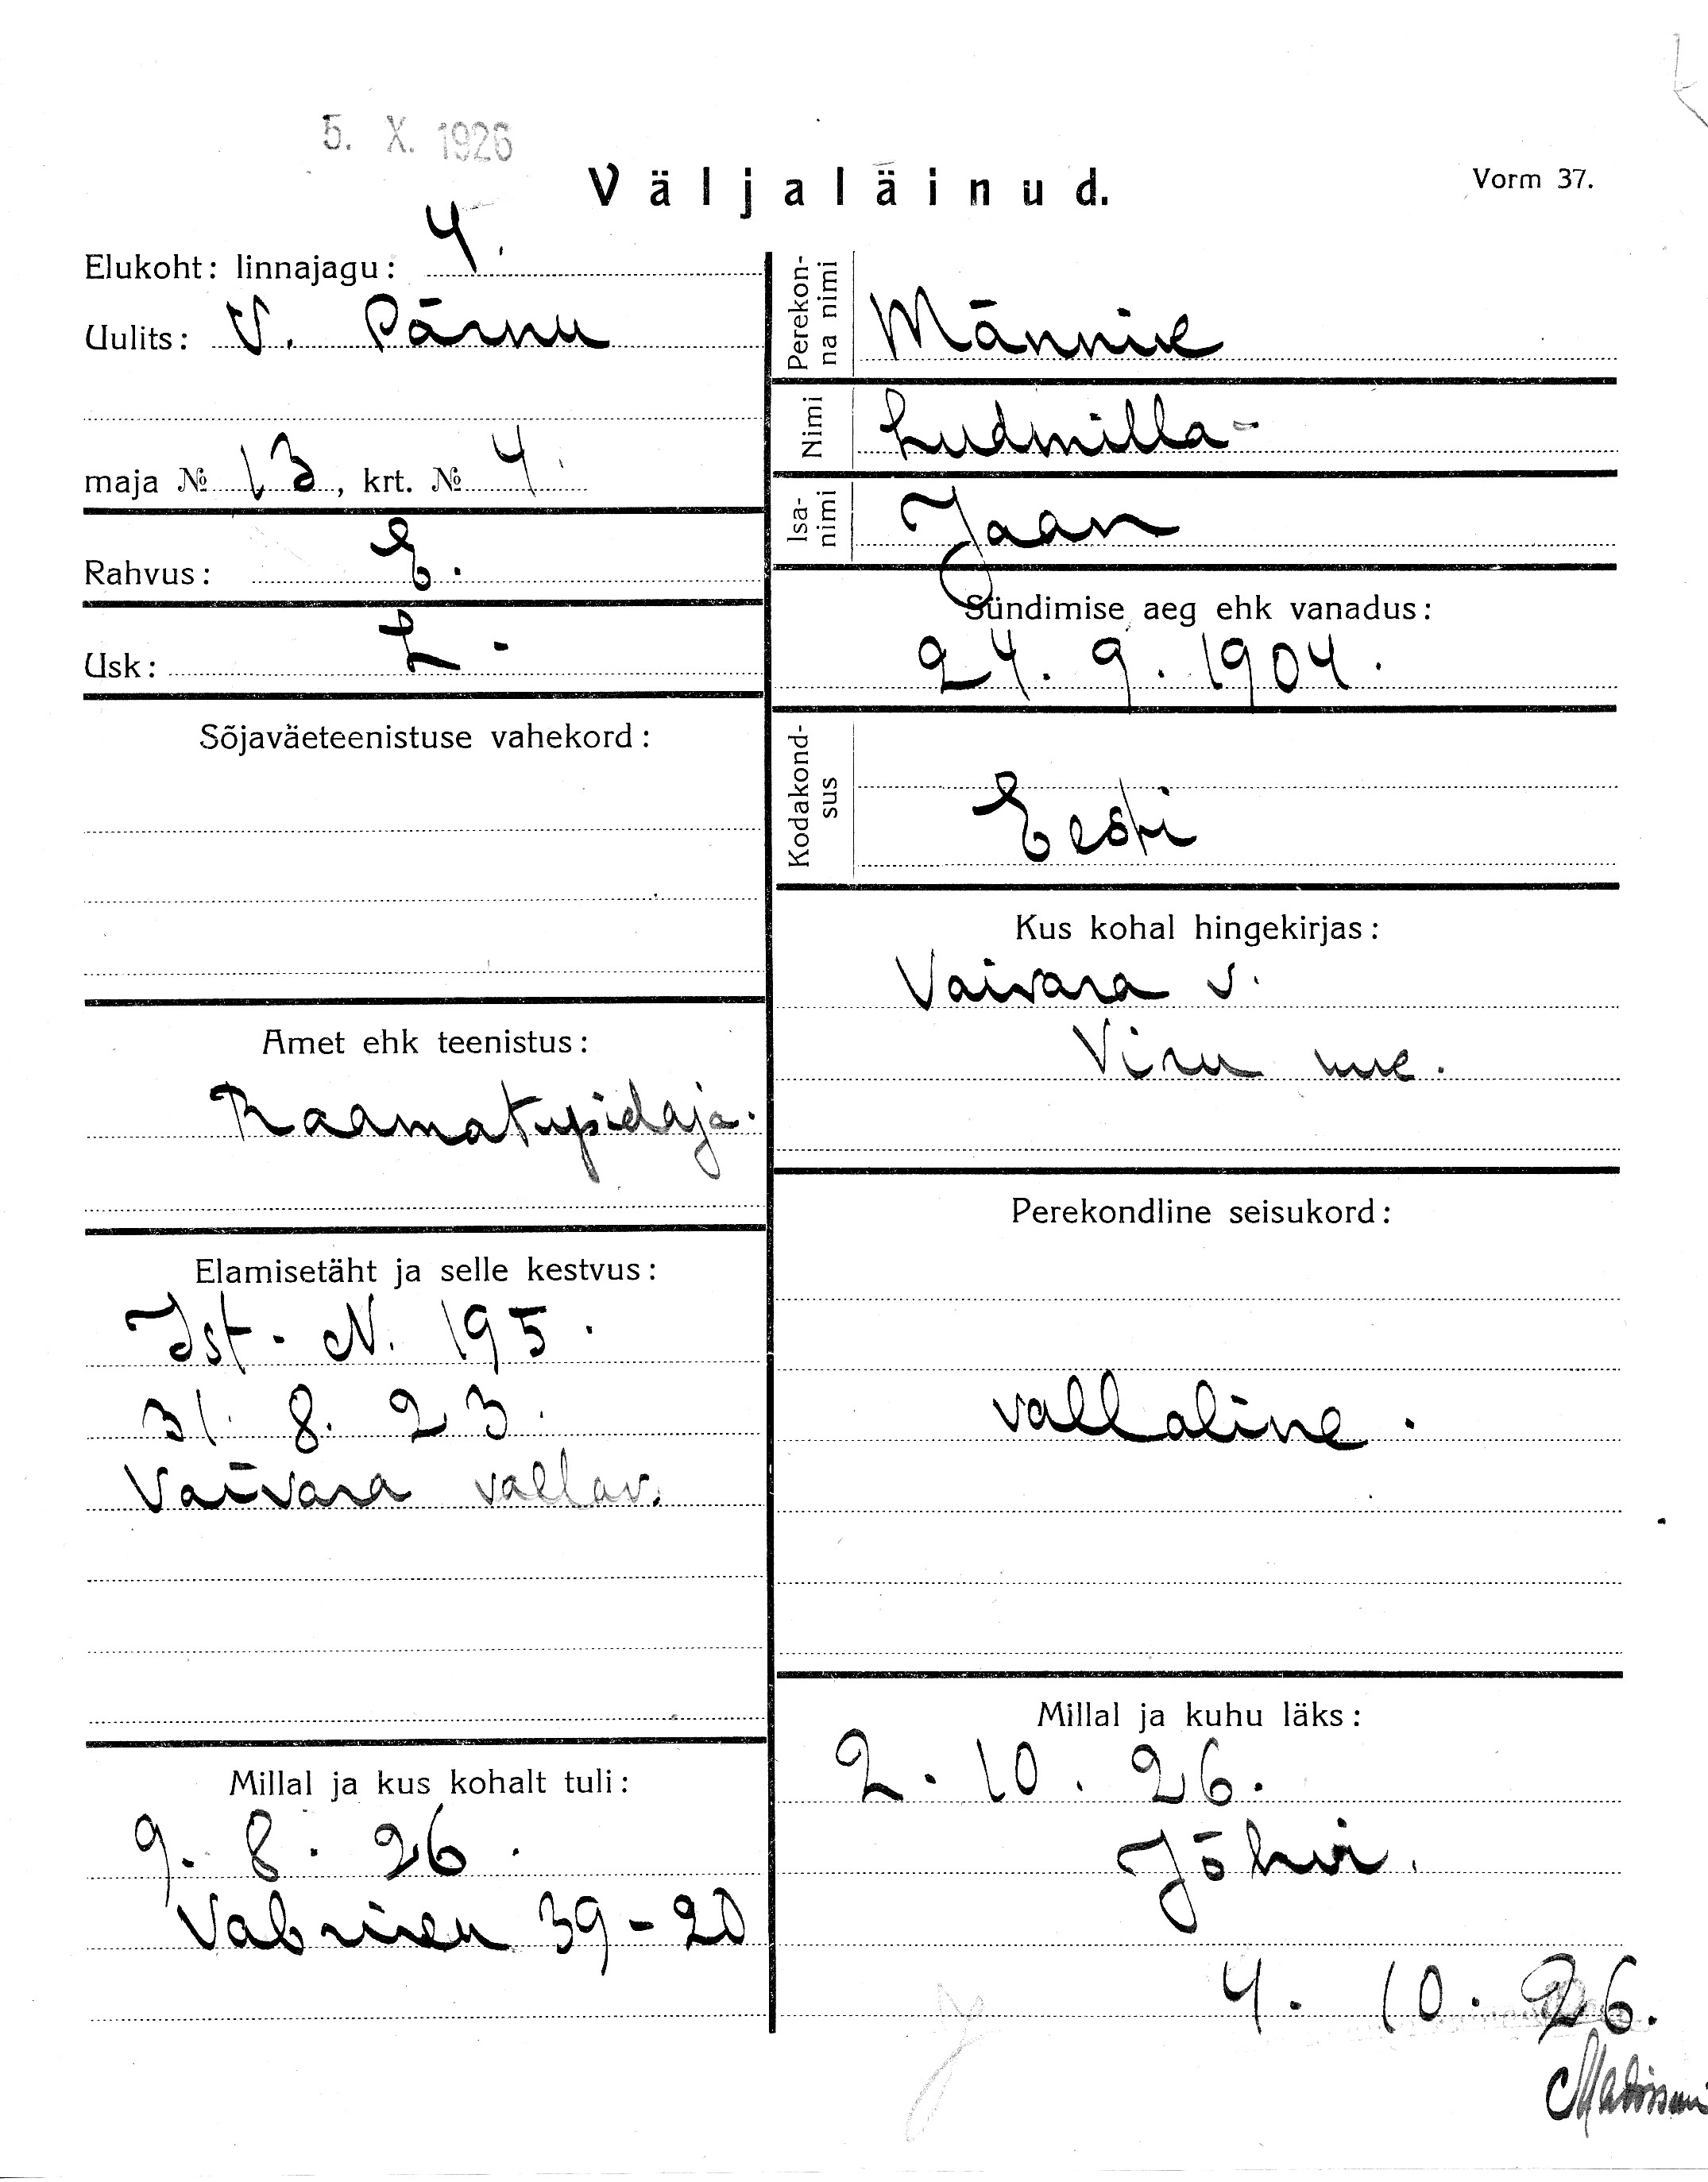 5. X. 1926
Väljaläinud.
Vorm 37.
Elukoht: linnajagu: 4.
Uulits: V. Pärnu
maja № 13, krt. № 4.
Rahvus: E.
Usk: L.
Sõjaväeteenistuse vahekord:
Amet ehk teenistus:
Raamatupidaja.
Elamisetäht ja selle kestvus:
Ist. N. 195.
31. 8. 23.
Vaivara vallav.
Millal ja kus kohalt tuli:
9. 8. 26.
Vabriku 39-20
Perekonna nimi
Männik
Nimi
Ludmilla-
Isanimi
Jaan
Sündimise aeg ehk vanadus:
24. 9. 1904.
Kodakondsus
Eesti
Kus kohal hingekirjas:
Vaivara v.
Viru mk.
Perekondline seisukord:
vallaline.
Millal ja kuhu läks:
2. 10. 26.
Jõhvi.
4. 10. 26.